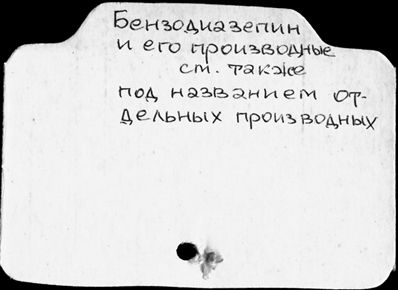 Бензодиазепин
и его производные
см. также
под названием от-
дельных производных